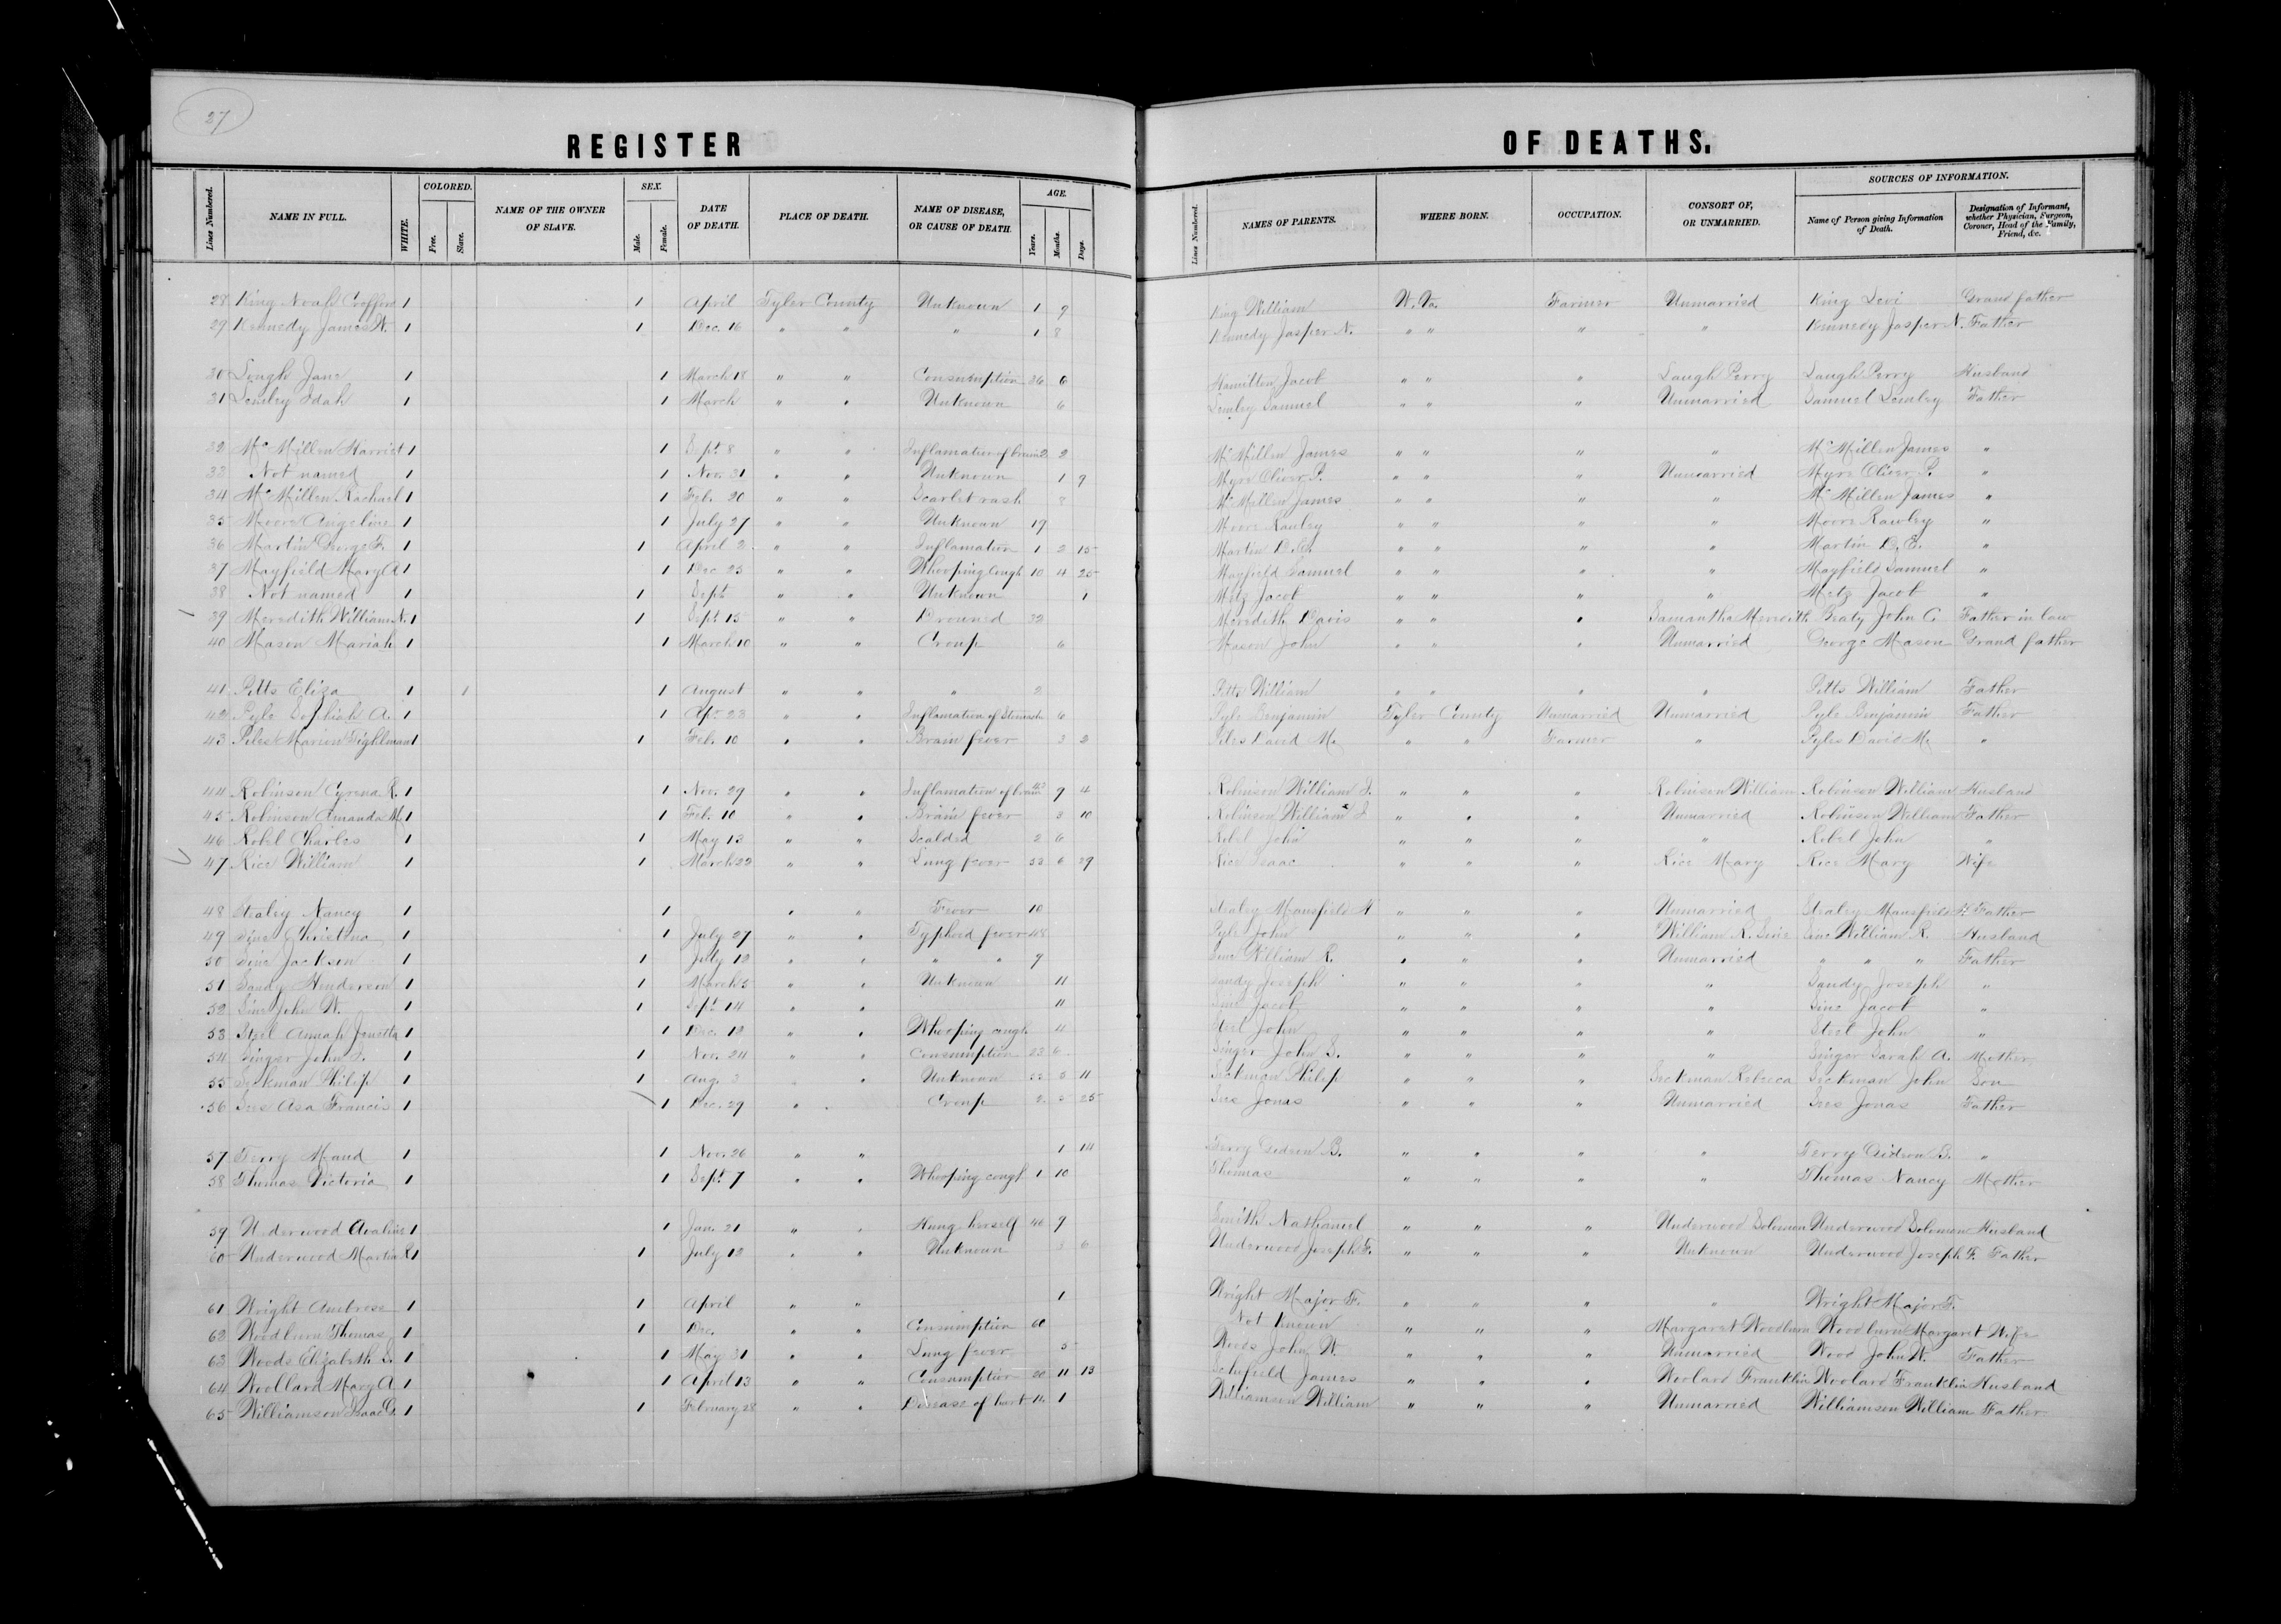 27
REGISTER OF DEATHS.
Lines Numbered. NAME IN FULL. WHITE. COLORED. Free. Slave. NAME OF THE OWNER OF SLAVE. SEX. Male. Female. DATE OF DEATH. PLACE OF DEATH. NAME OF DISEASE, OR CAUSE OF DEATH. AGE. Years. Months. Days.
Lines Numbered. NAMES OF PARENTS. WHERE BORN. OCCUPATION. CONSORT OF, OR UNMARRIED. SOURCES OF INFORMATION. Name of Person giving Information of Death. Designation of Informant, whether Physician, Surgeon, Coroner, Head of the Family, Friend, &c.
28 King Noah 1 1 April Tyler County Unknown 1 9 King William W. Va. Farmer Unmarried King Levi Grand father
29 Kennedy James W. 1 1 Dec. 16 " " " 1 8 Kennedy Jasper N. " " " " Kennedy Jasper N. Father
30 Lough Jane 1 1 March 18 " " Consumption 36 6 Hamilton Jacob " " " Laugh Perry Laugh Perry Husband
31 Lemley Idah 1 1 March " " Unknown 6 Lemley Samuel " " " Unmarried Samuel Lemley Father
32 Mc Millen Harriet 1 1 Sept. 8 " " Inflamation of brain 2 2 Mc Millen James " " " " Mc Millen James "
33 Not named 1 1 Nov. 31 " " Unknown 1 9 Myre Oliver P. " " " Unmarried Myre Oliver P. "
34 Mc Millen Rachael 1 1 Feb. 20 " " Scarlet rash 8 Mc Millen James " " " " Mc Millen James "
35 Moore Angeline 1 1 July 27 " " Unknown 19 Moore Rawley " " " " Moore Rawley "
36 Martin George F. 1 1 April 2 " " Inflamation 1 2 15 Martin D. E. " " " " Martin D. E. "
37 Mayfield Mary A 1 1 Dec 25 " " Whooping Cough 10 4 25 Mayfield Samuel " " " " Mayfield Samuel "
38 Not named 1 1 Sept " " Unknown 1 Metz Jacob " " " " Metz Jacob "
39 Meredith William N. 1 1 Sept 15 " " Drowned 32 Meredith Davis " " " Samantha Meredith Beaty John C Father in law
40 Mason Mariah 1 1 March 10 " " Croup 6 Mason John " " " Unmarried George Mason Grand father
41 Pitts Eliza 1 1 1 August " " " 2 Pitts William " " " " Pitts William Father
42 Pyle Sophiah A. 1 1 Apr. 23 " " Inflamation of Stomach 6 Pyle Benjamin Tyler County Unmarried Unmarried Pyle Benjamin Father
43 Piles Marion Tighlman 1 1 Feb. 10 " " Brain fever 3 2 Piles David M. " " Farmer " Pyles David M. "
44 Robinson Cyrena R. 1 1 Nov. 29 " " Inflamation of brain 9 4 Robinson William J. " " " Robinson William Robinson William Husband
45 Robinson Amanda M. 1 1 Feb. 10 " " Brain fever 3 10 Robinson William J " " " Unmarried Robinson William Father
46 Robel Charles 1 1 May 13 " " Scalded 2 6 Robel John " " " " Robel John "
47 Rice William 1 1 March 22 " " Lung fever 53 6 29 Rice Isaac " " " Rice Mary Rice Mary Wife
48 Stealey Nancy 1 1 " " Fever 10 Stealey Mansfield H " " " Unmarried Stealey Mansfield H. Father
49 Sine Christina 1 1 July 27 " " Typhoid fever 48 Pyle John " " " William R. Sine Sine William R. Husband
50 Sine Jackson 1 1 July 12 " " " " 9 Sine William R. " " " Unmarried " " " Father
51 Sandy Henderson 1 1 March 5 " " Unknown 11 Sandy Joseph " " " " Sandy Joseph "
52 Sine John W. 1 1 Sept. 14 " " 11 Sine Jacob " " " " Sine Jacob "
53 Steel Annah Jenetta 1 1 Dec. 12 " " Whooping cough 4 Steel John " " " " Steel John "
54 Singer John S. 1 1 Nov. 24 " " Consumption 23 6 Singer John S. " " " " Singer Sarah A. Mother
55 Seckman Philip 1 1 Aug. 3 " " Unknown 55 5 11 Seckman Philip " " " Seckman Rebecca Seckman John Son
56 Sees Asa Francis 1 1 Dec. 29 " " Croup 2 5 25 Sees Jonas " " " Unmarried Sees Jonas Father
57 Terry Maud 1 1 Nov. 26 " " 1 14 Terry Gidson B. " " " " Terry Gidson B. "
58 Thomas Victoria 1 1 Sept. 7 " " Whooping cough 1 10 Thomas " " " " Thomas Nancy Mother
59 Underwood Avaline 1 1 Jan. 21 " " Hung herself 46 9 Smith Nathaniel " " " Underwood Solomon Underwood Solomon Husband
60 Underwood Martin R 1 1 July 12 " " Unknown 3 6 Underwood Joseph F. " " " Unknown Underwood Joseph F. Father
61 Wright Ambrose 1 1 April " " 1 Wright Major F. " " " " Wright Major F.
62 Woodburn Thomas 1 1 Dec. " " Consumption 60 Not Known " " " Margaret Woodburn Woodburn Margaret Wife
63 Woods Elizabeth S. 1 1 May 31 " " Lung fever 5 Woods John W. " " " Unmarried Wood John W. Father
64 Woollard Mary A 1 1 April 13 " " Consumption 20 11 13 Schofield James " " " Woolard Franklin Woolard Franklin Husband
65 Williamson Isaac G. 1 1 February 28 " " Disease of heart 14 1 Williamson William " " " Unmarried Williamson William Father